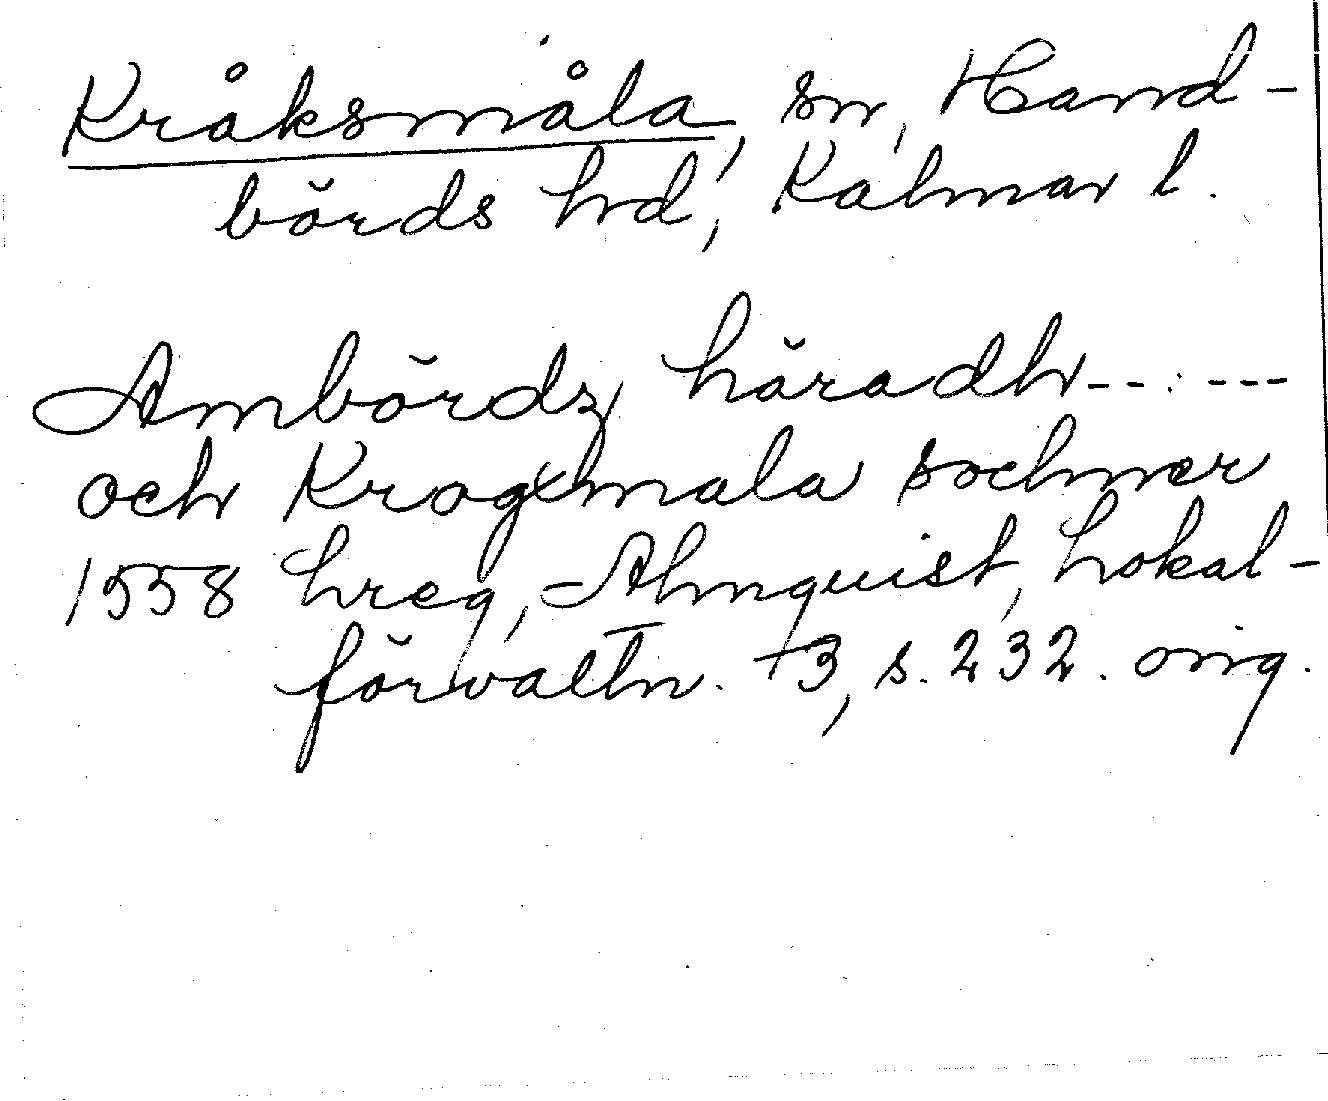 Kråksmåla, sn, Hand-
börds hd, Kalmar l.
Ambördz häradh------
och Krogxmala sochner
1558 hreg, Almquist, Lokal-
förvaltn. 3, s. 232. orig.